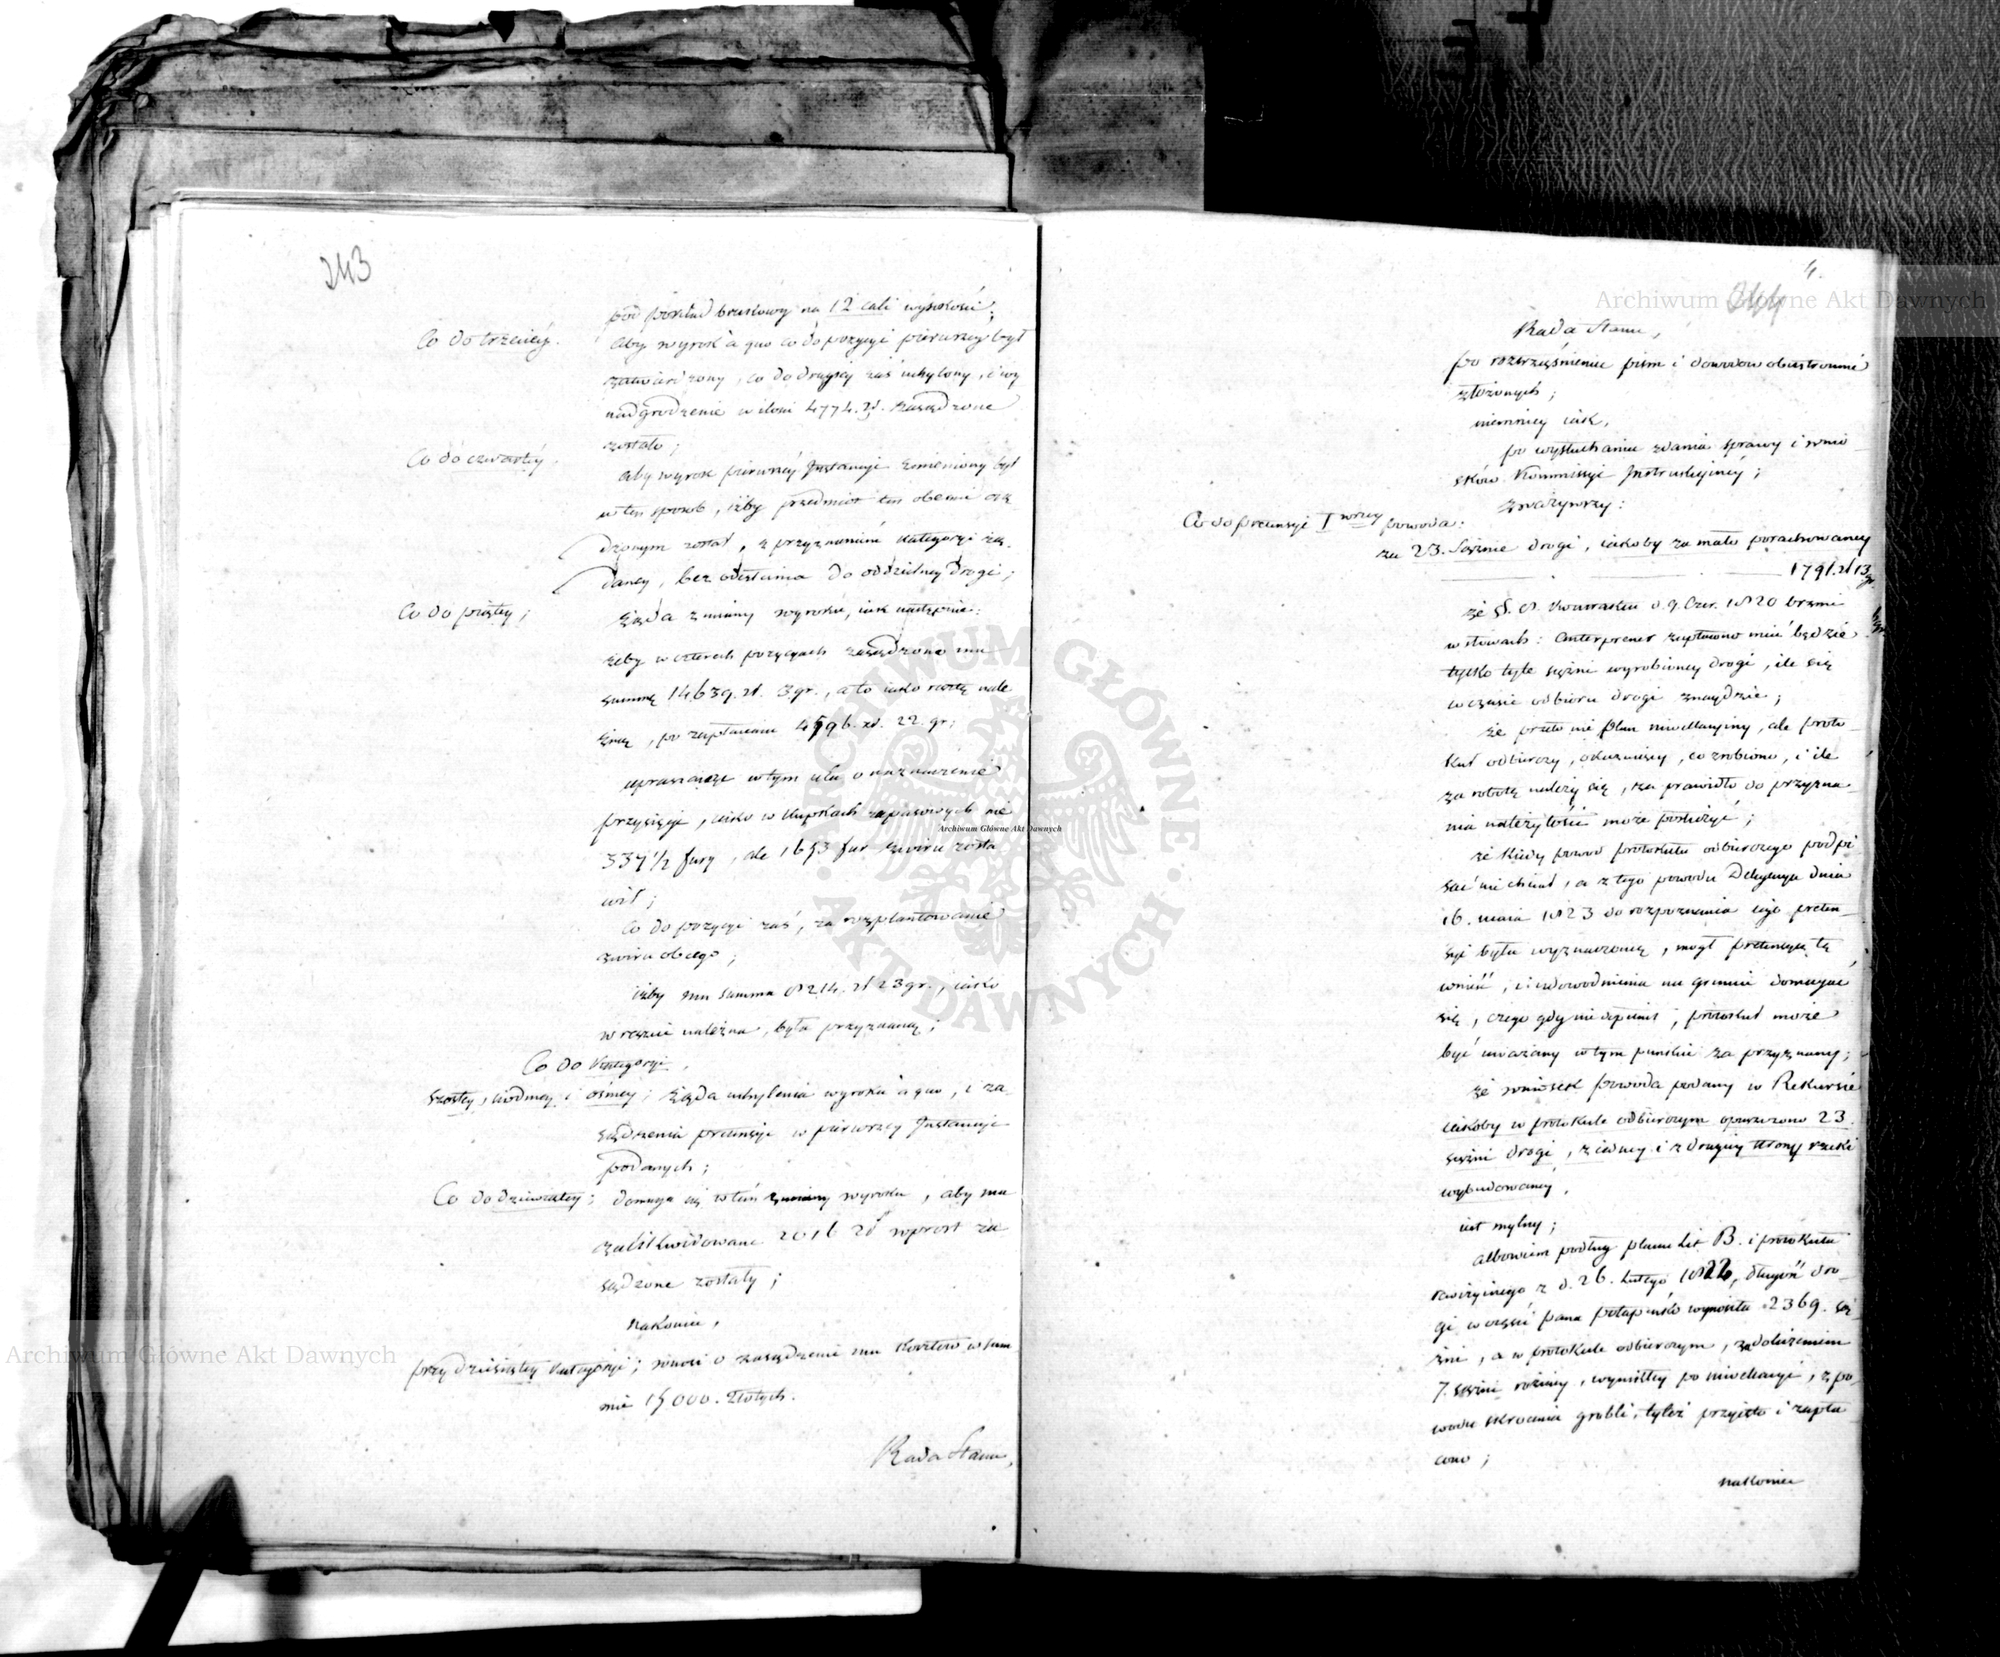 243
pod pokład brukowy na 12 cali wysokości;
Co do trzeciéy.
aby wyrok à quo co do pozycyi pierwszey był
zatwierdzony, co do drugiey zaś uchylony, i wy
nadgrodzenie w ilości 4774. zł. zasądzone
zostało;
Co do czwartéy.
aby wyrok pierwszéy Instancyi zmieniony był
w ten sposób, iżby przedmiot ten obecnie osą
dzonym został, z przyznaniem kategoryi żą-
daney, bez odesłania do oddzielney drogi;
Co do piątéy;
żąda zmiany wyroku, iak następnie:
żeby w czterech pozycyach zasądzono mu
summę 14639. zł. 3 gr., a to iako resztę nale
żną, po zapłaceniu 4596. zł. 22. gr;
upraszaiąc w tym celu o naznaczenie
przysięgi, iako w kupkach zapasowych nie
337 1/2 fury, ale 1653 fur żwiru zosta
wił;
Co do pozycyi zaś, za rozplantowanie
żwiru obcego;
iżby mu summa 8214. zł 23 gr., iako
w reszcie należna, była przyznaną;
Co do Kategoryi
szóstéy, siódmey i ósmey; żąda uchylenia wyroku à quo, i za-
sądzenia pretensyi w pierwszey Instancyi
podanych;
Co do dziewiątéy; domaga się w tém zmiany wyroku, aby mu
zalikwidowane 2016 zł wprost za
sądzone zostały;
nakoniec,
przy dziesiątéy kategoryi; wnosi o zasądzenie mu kosztów w sum-
mie 15000. Złotych.
Rada Stanu,
4.
244
Rada Stanu,
po roztrząśnieniu pism i dowodów obustronnie
złożonych;
niemniey iak,
po wysłuchaniu zdania sprawy i wnio
sków Kommissyi Instrukcyinéy;
Zważywszy:
Co do pretensyi I wszey powoda:
za 23. Sążnie drogi, iakoby za mało porachowaney
1791. zł 13 gr.
że §. 8. Kontraktu d. 9. Czer. 1820 brzmi
w słowach: Anterprener zapłacono mieć będzie
tylko tyle sążni wyrobioney drogi, ile się
w czasie odbioru drogi znaydzie;
że przeto nie plan niwellacyiny, ale proto-
kuł odbiorczy, okazuiący, co zrobiono, i ile
za robotę należy się, za prawidło do przyzna-
nia należytości może posłużyć;
że kiedy powod protokułu odbiorczego podpi
sać nie chciał, a z tego powodu Delegacya dnia
16. maia 1823 do rozpoznania iego preten-
syi była wyznaczoną, mógł pretensyą tę
wnieść, i udowodnienia na gruncie domagać
się, czego gdy nie dopełnił, protokuł może
być uważany w tym punkcie za przyznany;
że wniosek powoda podany w Rekursie
iakoby w protokule odbiorczym opuszczono 23.
sążni drogi, z iedney i z drugiéy strony rzeki
wybudowanéy,
iest mylny;
albowiem podług planu Lit B. i protokułu
rewizyinego z d. 26. Lutego 1822, długość dro-
gi w części pana Potap wynosiła 2369. są
żni, a w protokule odbiorczym, z doliczeniem
7. sążni różnicy, wynikłey po niwellacyi, z po-
wodu skrócenia grobli, tyleż przyięto i zapła
cono;
nakoniec